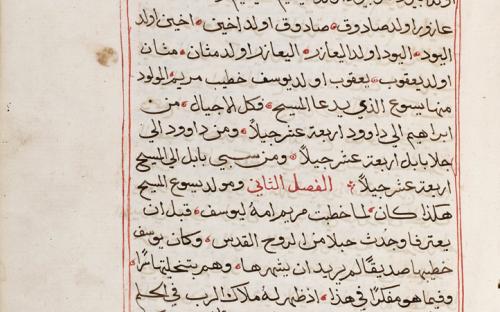 عازور اولد صادوق ٭ صادوق اولد اخين ٭ اخين اولد
اليود ٭ اليود اولد اليعازر ٭ اليعازر اولد مثان ٭ مثان
اولد يعقوب ٭ يعقوب اولد يوسف خطيب مريم المولود
منها يسوع الذي يدعا المسيح ٭ فكل الاجيال ٭ من
ابراهيم الي داوود اربعة عشر جيلاً ٭ ومن داوود الي
جلا بابل اربعة عشر جيلاً ٭ ومن سبي بابل الي المسيح
اربعة عشر جيلاً ٭ الفصل الثاني ومولد يسوع المسيح
هكذا كان ٭ لما خطبت مريم امه ليوسف ٭ قبل ان
يعترفا وجدت حبلا من الروح القدس ٭ وكان يوسف
خطيبها صديقاً لم يريد ان يشهرها ٭ وهم بتخليتها سرًا ٭
وفيما هو مفكرًا في هذا ٭ اذ ظهر له ملاك الرب في الحلم